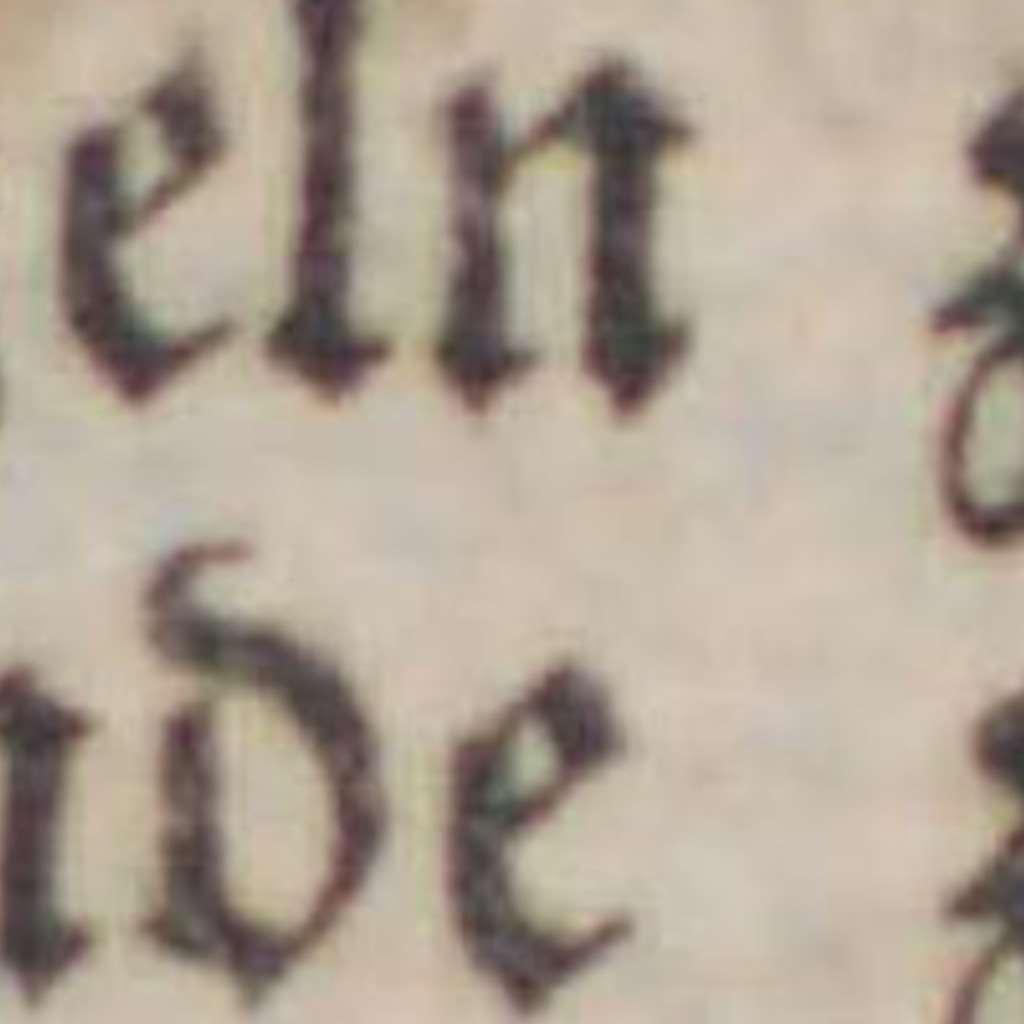 eln
nde